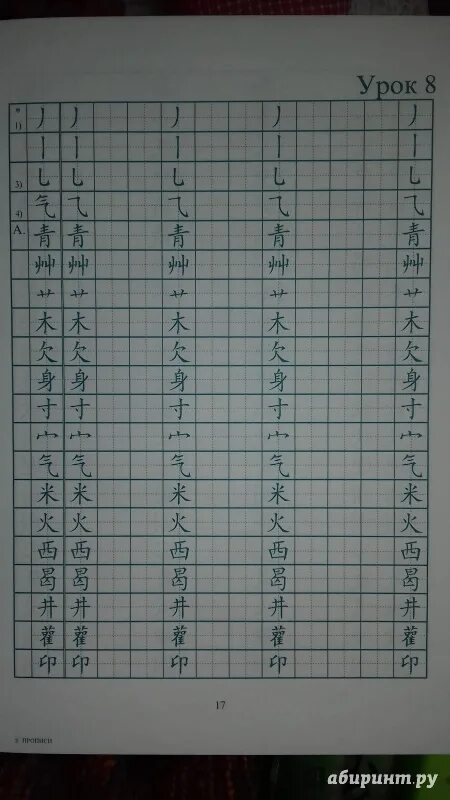 Урок 8
* 1) 丿 丿 丿 丿 丿
丨 丨 丨 丨 丨
3) 乚 乚 乚 乚 乚
4) 气 ⺄ ⺄ ⺄ ⺄
А. 青 青 青 青 青
艸 艸 艸 艸 艸
艹 艹 艹 艹 艹
木 木 木 木 木
欠 欠 欠 欠 欠
身 身 身 身 身
寸 寸 寸 寸 寸
宀 宀 宀 宀 宀
气 气 气 气 气
米 米 米 米 米
火 火 火 火 火
西 西 西 西 西
曷 曷 曷 曷 曷
井 井 井 井 井
雚 雚 雚 雚 雚
印 印 印 印 印
17
ПРОПИСИ
абиринт.ру